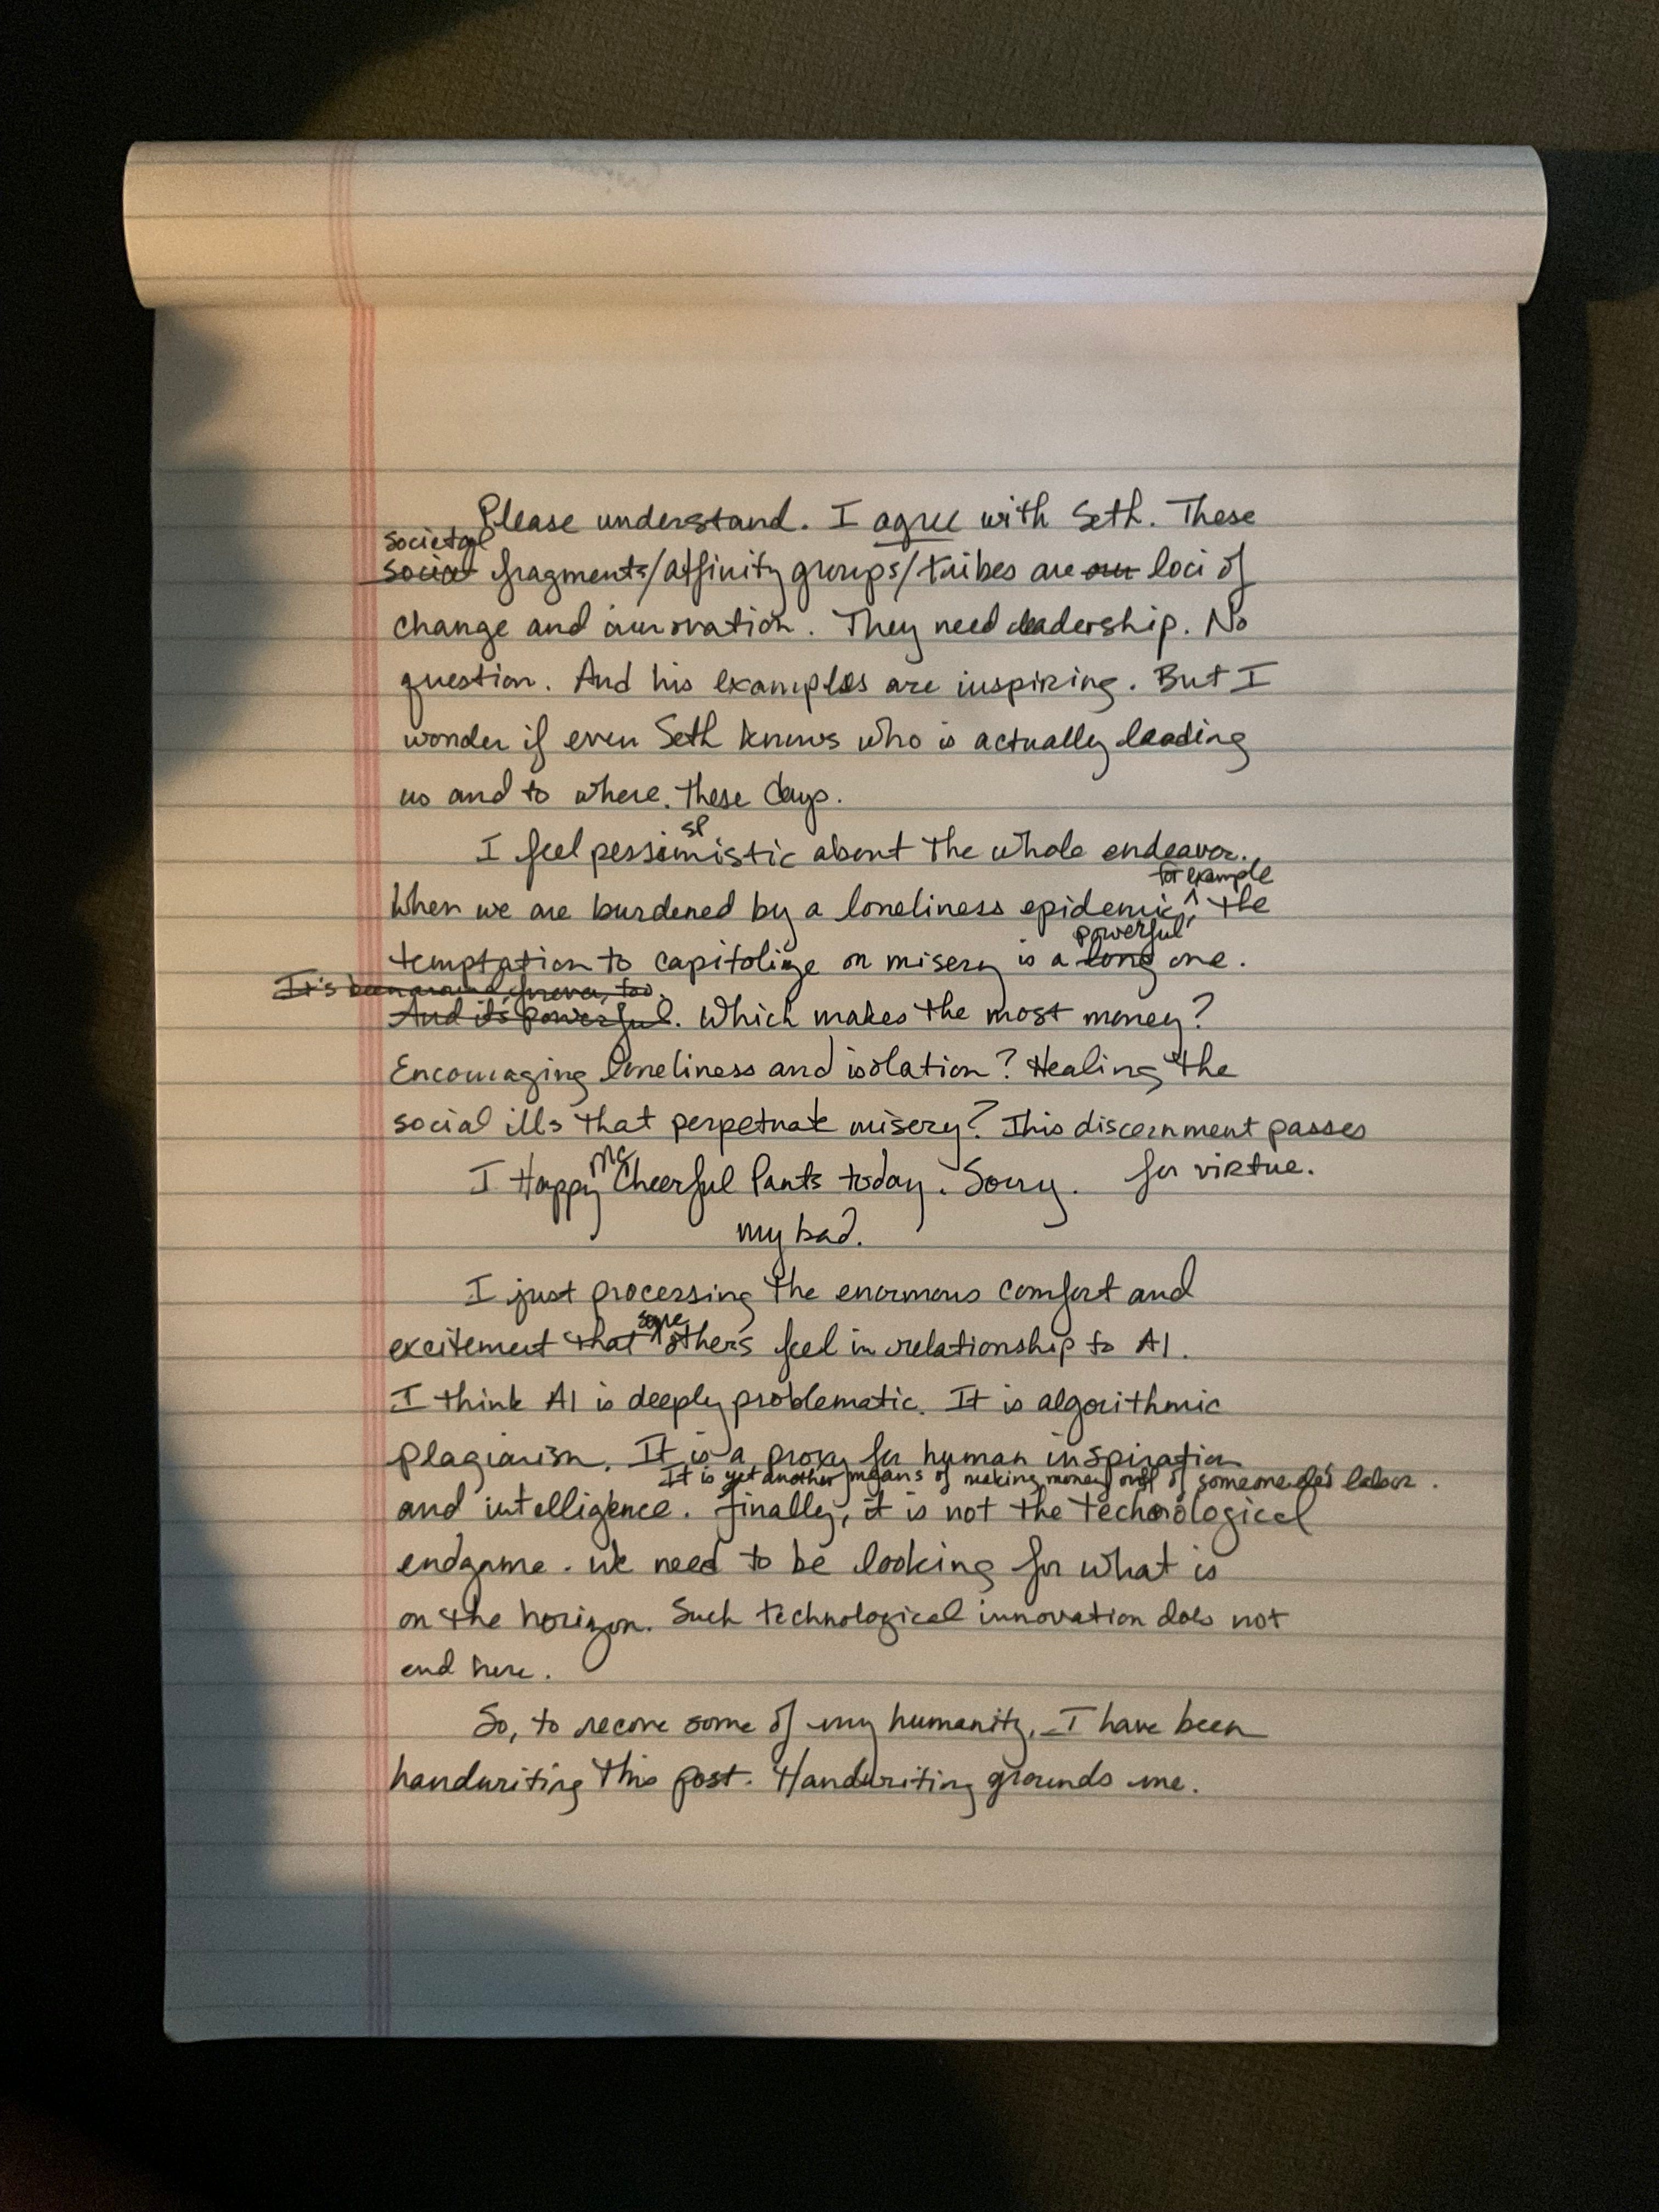 Please understand. I agree with Seth. These
societal
social fragments/affinity groups/tribes are our loci of
change and innovation. They need leadership. No
question. And his examples are inspiring. But I
wonder if even Seth knows who is actually leading
us and to where, these days.
sp
I feel pessimistic about the whole endeavor.
for example
When we are burdened by a loneliness epidemic^, the
powerful
temptation to capitolize on misery is a long one.
It's been around forever, too.
And it's powerful. Which makes the most money?
Encouraging loneliness and isolation? Healing the
social ills that perpetuate misery? This discernment passes
for virtue.
Mc
I Happy Cheerful Pants today. Sorry.
my bad.
I just processing the enormous comfort and
some
excitement that ^ others feel in relationship to AI.
I think AI is deeply problematic. It is algorithmic
plagiarism. It is a proxy for human inspiration
It is yet another means of making money off of someone else's labor.
and intelligence. Finally, it is not the technological
endgame. We need to be looking for what is
on the horizon. Such technological innovation does not
end here.
So, to recove some of my humanity, I have been
handwriting this post. Handwriting grounds me.